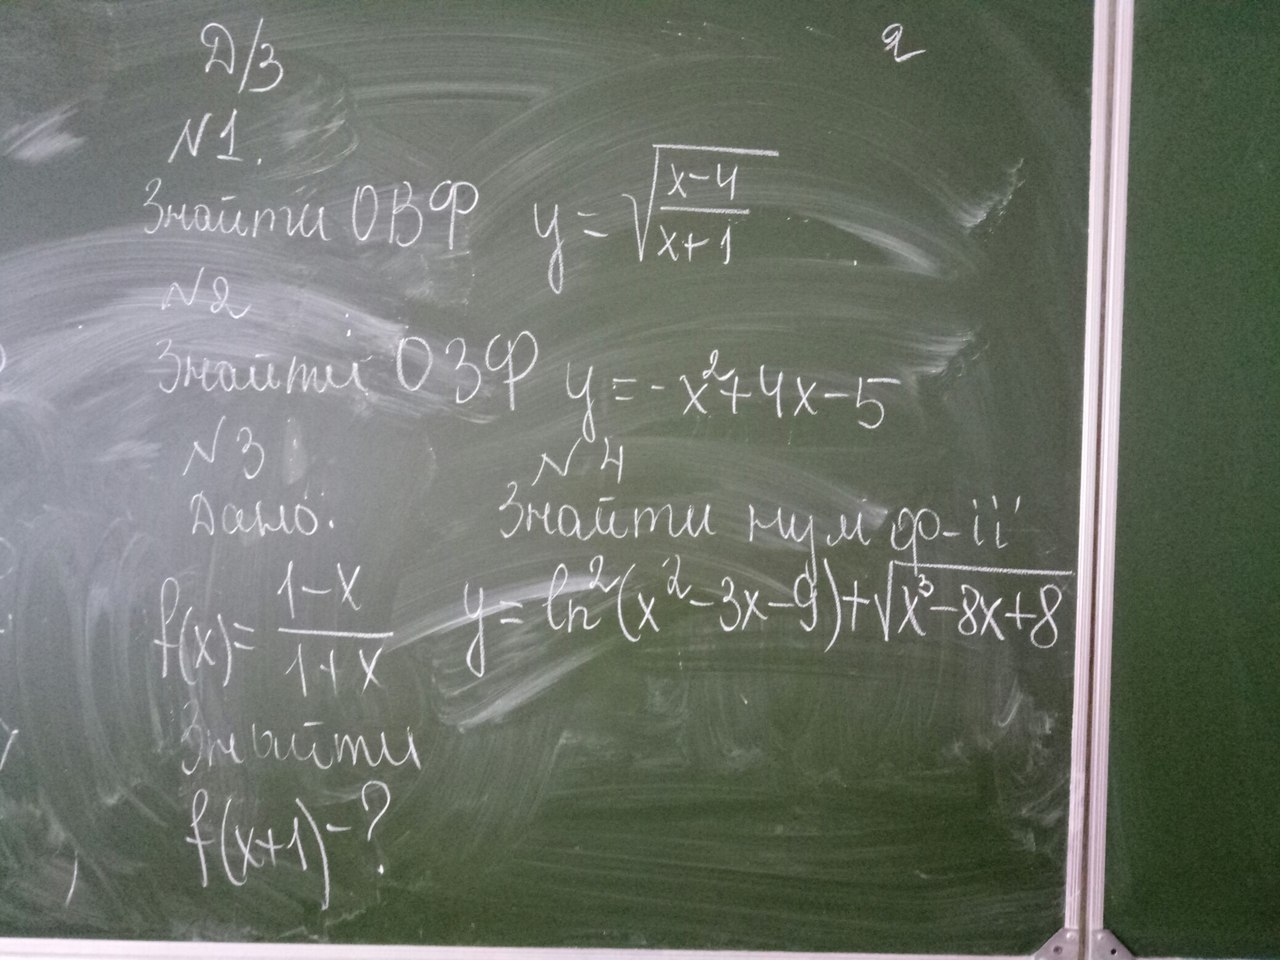 Д/З
№1.
Знайти ОВФ y = √((x-4)/(x+1))
№2
Знайти ОЗФ y = -x²+4x-5
№3
Дано:
f(x)= (1-x)/(1+x)
Знайти
f(x+1)-?
№4
Знайти нулі ф-ії
y = ln²(x²-3x-9)+√(x³-8x+8)